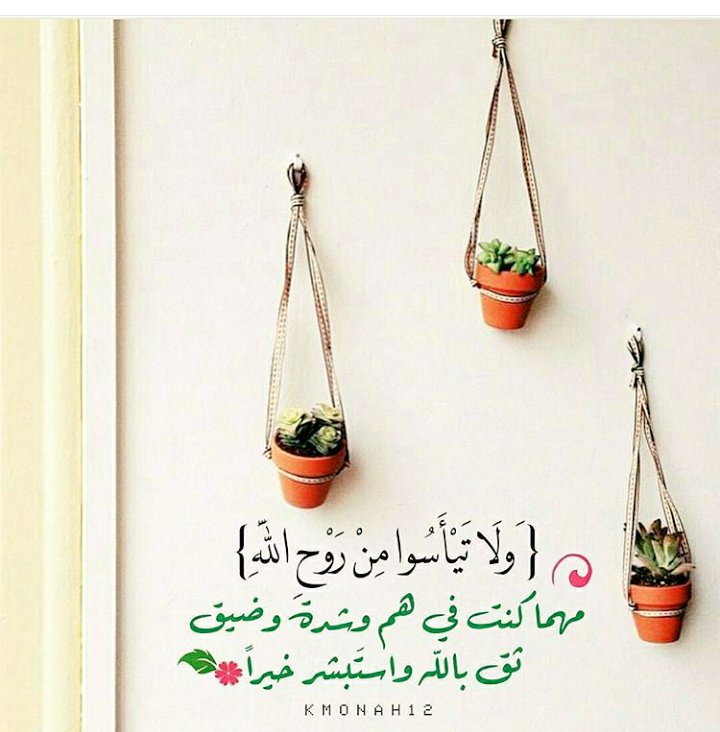 {وَلَا تَيْأَسُوا مِنْ رَوْحِ اللَّهِ}
مهما كنت في هم وشدةَ وضيق
ثق بالله واستَبشر خيراً
KMONAH12